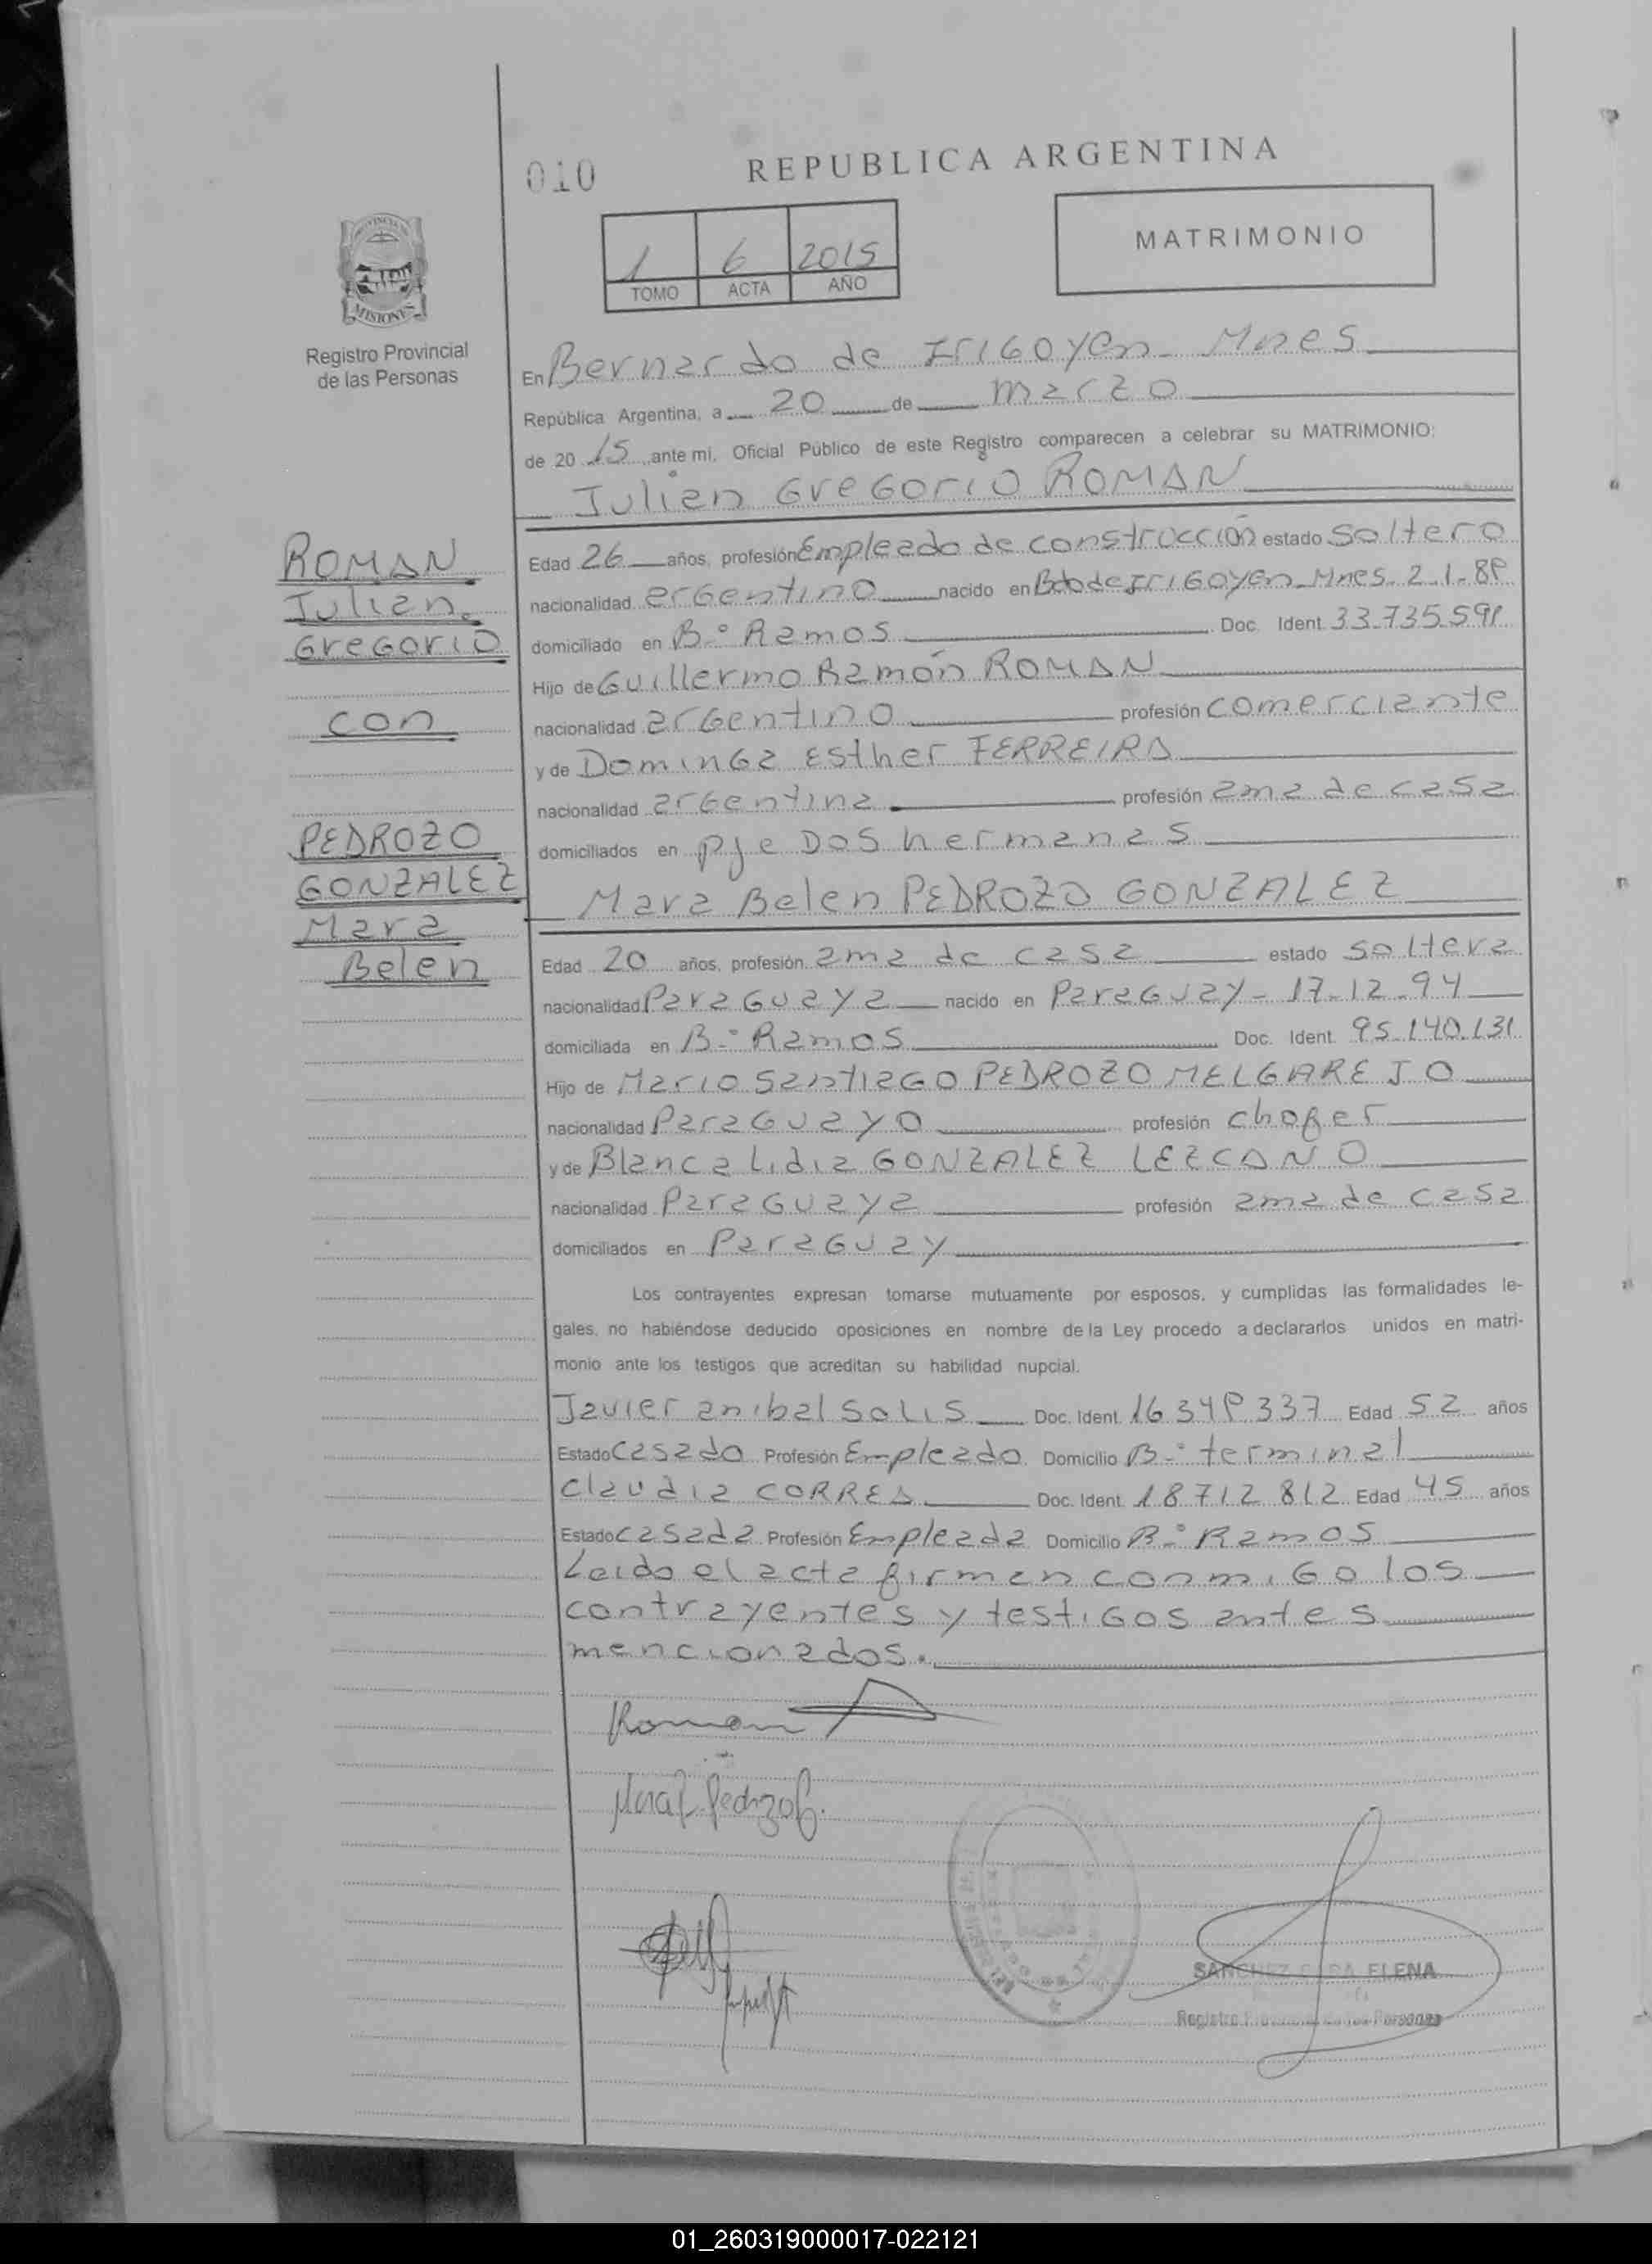 010
REPUBLICA ARGENTINA
1 6 2015
TOMO ACTA AÑO
MATRIMONIO
PROVINCIA DE
MISIONES
Registro Provincial
de las Personas
En Bernardo de Irigoyen - Mnes
República Argentina, a 20 de marzo
de 20 15 ante mi, Oficial Público de este Registro comparecen a celebrar su MATRIMONIO:
Julian Gregorio ROMAN
ROMAN
Julian
Gregorio
con
PEDROZO
GONZALEZ
Mara
Belen
Edad 26 años, profesión Empleado de construcción estado soltero
nacionalidad argentino nacido en Bdo de Irigoyen - Mnes 2-1-89
domiciliado en B.º Ramos Doc. Ident. 33.735.591
Hijo de Guillermo Ramón ROMAN
nacionalidad argentino profesión comerciante
y de Dominga Esther FERREIRA
nacionalidad argentina profesión ama de casa
domiciliados en pje Dos hermanas
Mara Belen PEDROZO GONZALEZ
Edad 20 años, profesión ama de casa estado soltera
nacionalidad Paraguaya nacido en Paraguay - 17-12-94
domiciliada en B.º Ramos Doc. Ident. 95.140.131
Hijo de Mario Santiago PEDROZO MELGAREJO
nacionalidad Paraguayo profesión chofer
y de Blanca Lidia GONZALEZ LEZCANO
nacionalidad Paraguaya profesión ama de casa
domiciliados en Paraguay
Los contrayentes expresan tomarse mutuamente por esposos, y cumplidas las formalidades le-
gales, no habiéndose deducido oposiciones en nombre de la Ley procedo a declararlos unidos en matri-
monio ante los testigos que acreditan su habilidad nupcial.
Javier anibal SOLIS Doc. Ident. 16 349 337 Edad 52 años
Estado casado Profesión Empleado Domicilio B.º terminal
Claudia CORREA Doc. Ident. 18 712 812 Edad 45 años
Estado casada Profesión Empleada Domicilio B.º Ramos
Leido el acta firman conmigo los
contrayentes y testigos antes
mencionados.
Roman
Mara Pedrozo G.
SANCHEZ ELENA
Registro Personas
01_260319000017-022121